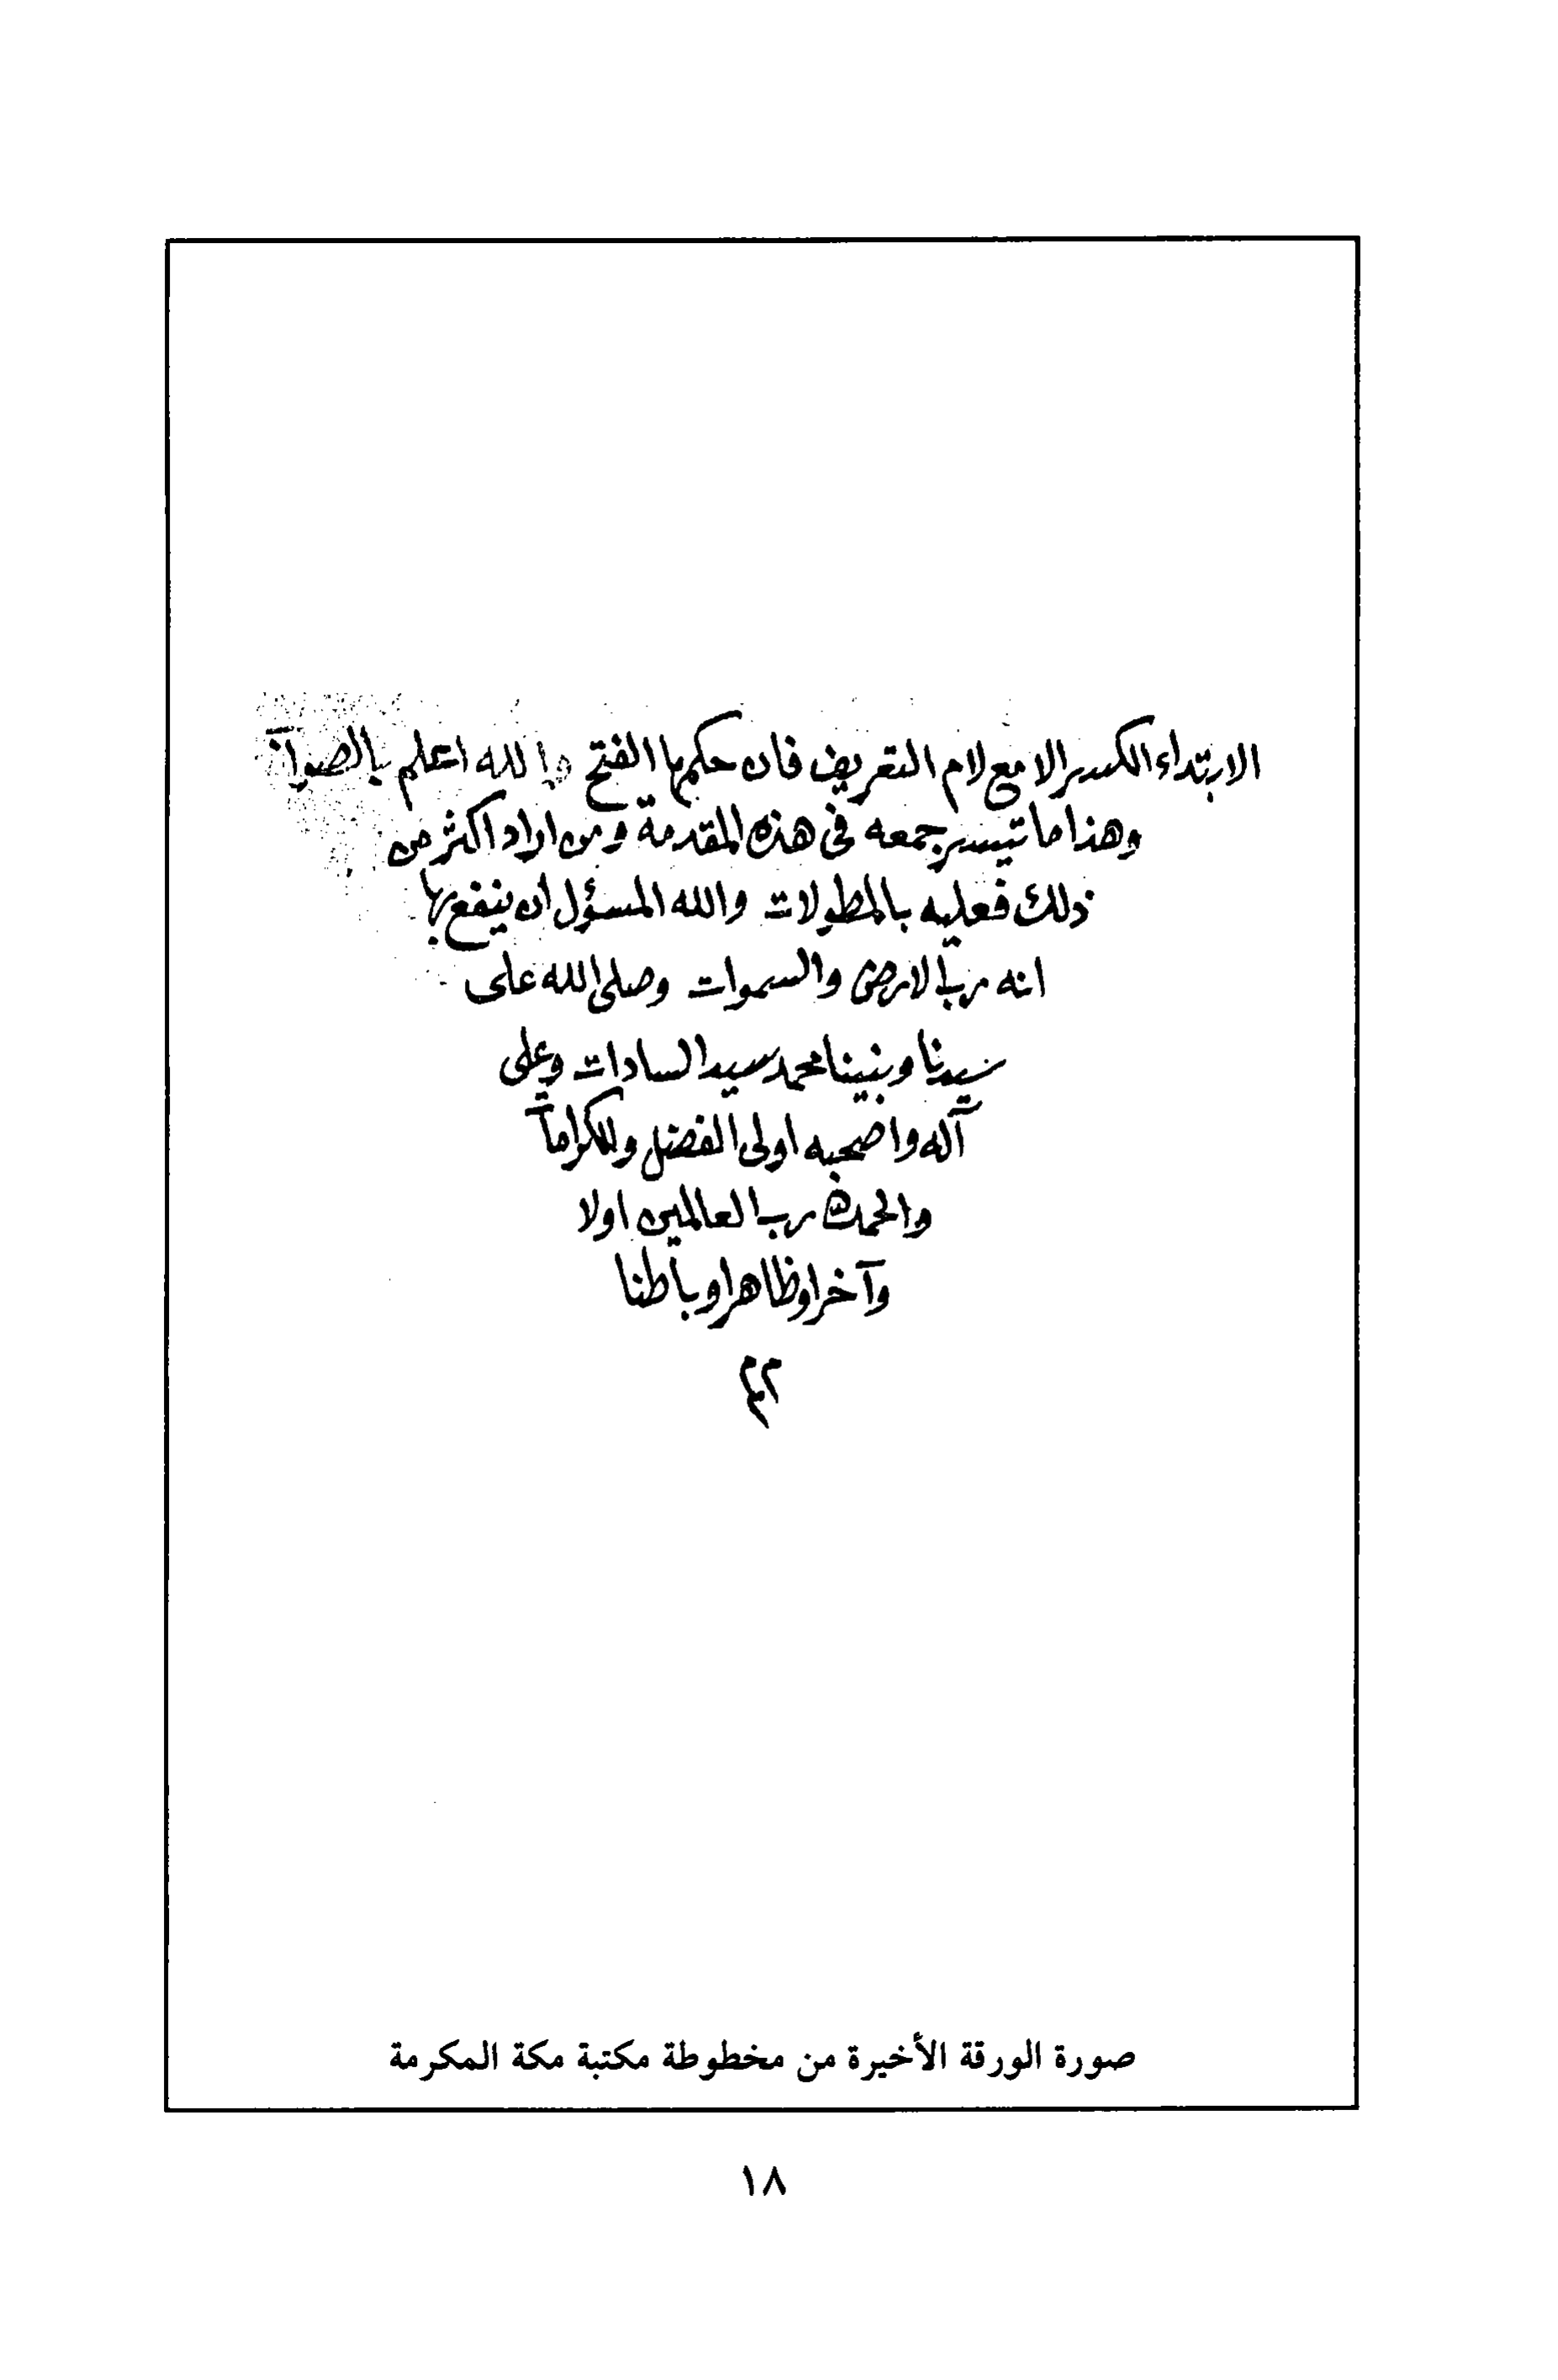 الابتداء الكسر الا مع لام التعريف فان حكمها الفتح والله اعلم بالصواب
وهذا ما تيسر جمعه فى هذه المقدمة ومن اراد اكثر من
ذلك فعليه بالمطولات والله المسؤل ان ينفع بها
انه رب الارض والسموات وصلى الله على
سيدنا ونبينا محمد سيد السادات وعلى
آله واصحبه اولى الفضل والكرامات
والحمد لله رب العالمين اولا
وآخرا وظاهرا وباطنا
صورة الورقة الأخيرة من مخطوطة مكتبة مكة المكرمة
١٨